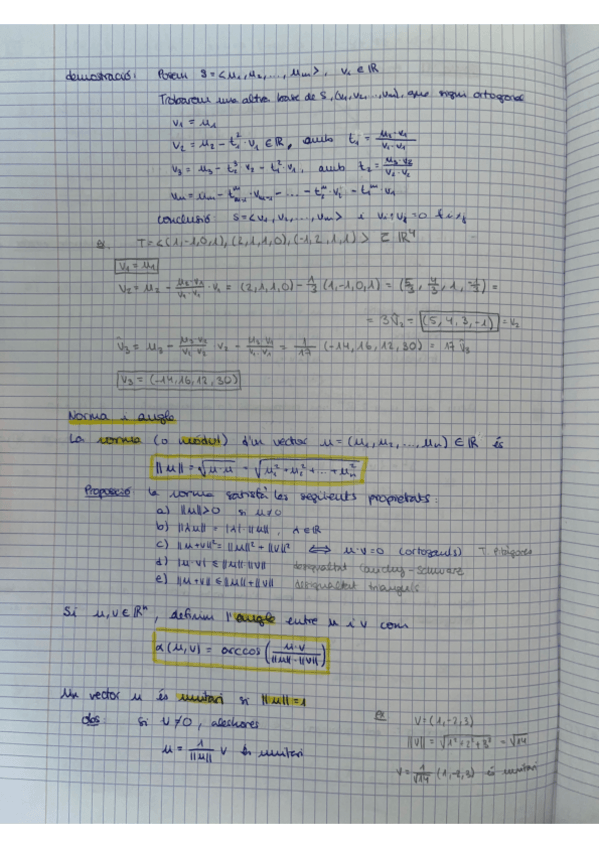 demostració: Posem S = <u₁, u₂, ..., uₘ>, vᵢ ∈ ℝ
Trobarem una altra base de S, (v₁, v₂, ..., vₘ), que sigui ortogonal
v₁ = u₁
v₂ = u₂ - t₁² · v₁ ∈ ℝ, amb t₁ = (u₂ · v₁)/(v₁ · v₁)
v₃ = u₃ - t₂³ · v₂ - t₁² · v₁, amb t₂ = (u₃ · v₂)/(v₂ · v₂)
conclusió: S = <v₁, v₂, ..., vₘ> i
ex. T = <(1,-1,0,1), (2,1,1,0), (-1,2,1,1)> ∈ ℝ⁴
v₁ = u₁
v₂ = u₂ - (u₂ · v₁)/(v₁ · v₁) · v₁ = (2,1,1,0) - 1/3 (1,-1,0,1) = (5/3, 4/3, 1, -1/3) =
= 3 v̂₂ = (5,4,3,-1) = v₂
v̂₃ = u₃ - (u₃ · v₂)/(v₂ · v₂) · v₂ - (u₃ · v₁)/(v₁ · v₁) = 1/17 (-14,16,12,30) = 17 v̂₃
v₃ = (-14,16,12,30)
Norma i angle
La norma (o mòdul) d'un vector u = (u₁, u₂, ..., uₙ) ∈ ℝ és
||u|| = √(u · u) = √(u₁² + u₂² + ... + uₙ²)
Proposició: La norma satisfà les següents propietats:
a) ||u|| > 0 si u ≠ 0
b) ||λu|| = |λ| · ||u||, λ ∈ ℝ
c) ||u+v||² = ||u||² + ||v||² ⟺ u · v = 0 (ortogonals) T. Pitàgores
d) |u · v| ≤ ||u|| · ||v|| desigualtat Cauchy-Schwarz
e) ||u+v|| ≤ ||u|| + ||v|| desigualtat triangular
Si u, v ∈ ℝⁿ, definim l'angle entre u i v com
α(u,v) = arccos( (u · v)/(||u|| · ||v||) )
Un vector u és unitari si ||u|| = 1
obs: si v ≠ 0, aleshores
u = 1/||u|| v és unitari
ex V = (1,-2,3)
||v|| = √(1² + 2² + 3²) = √14
v = 1/√14 (1,-2,3) és unitari